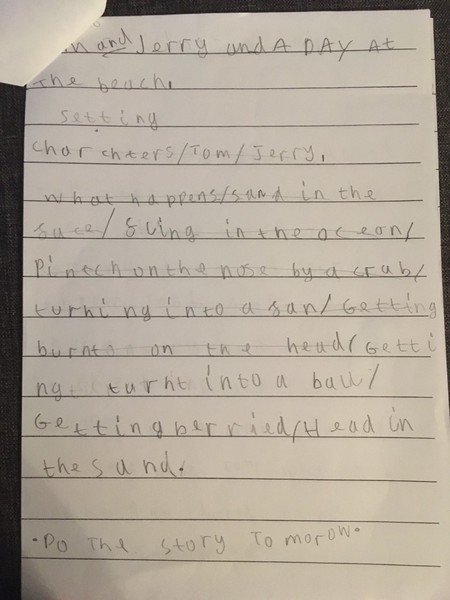 and Jerry and A DAY At
the beach.
setting
charchters/Tom/Jerry.
what happens/sand in the
/ in the ocean/
Pintch on the nose by a crab/
turning into a san/Getting
burnt on the head/Getti
ng turnt into a ball/
Getting berried/Head in
the sand.
•Do The story Tomorow•